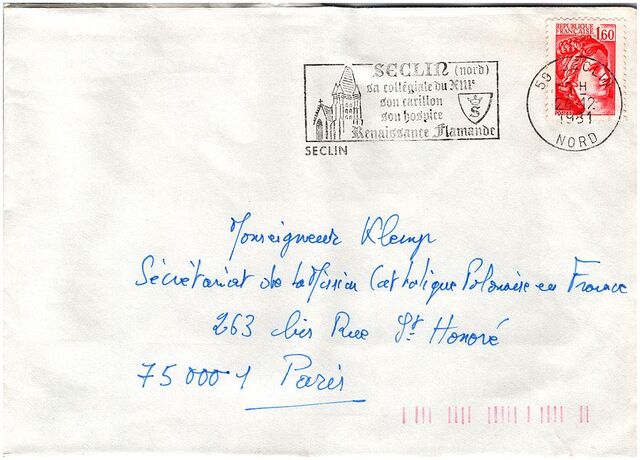 SECLIN (nord)
sa collégiale du XIIIe
son carillon
son hospice
Renaissance Flamande
S
SECLIN
REPUBLIQUE
FRANÇAISE
1,60
59 SECLIN
H
12
1981
NORD
Monseigneur Klemp
Sécrétariat de la Mission Catholique Polonaise en France
263 bis Rue St Honoré
75 000 1 Paris